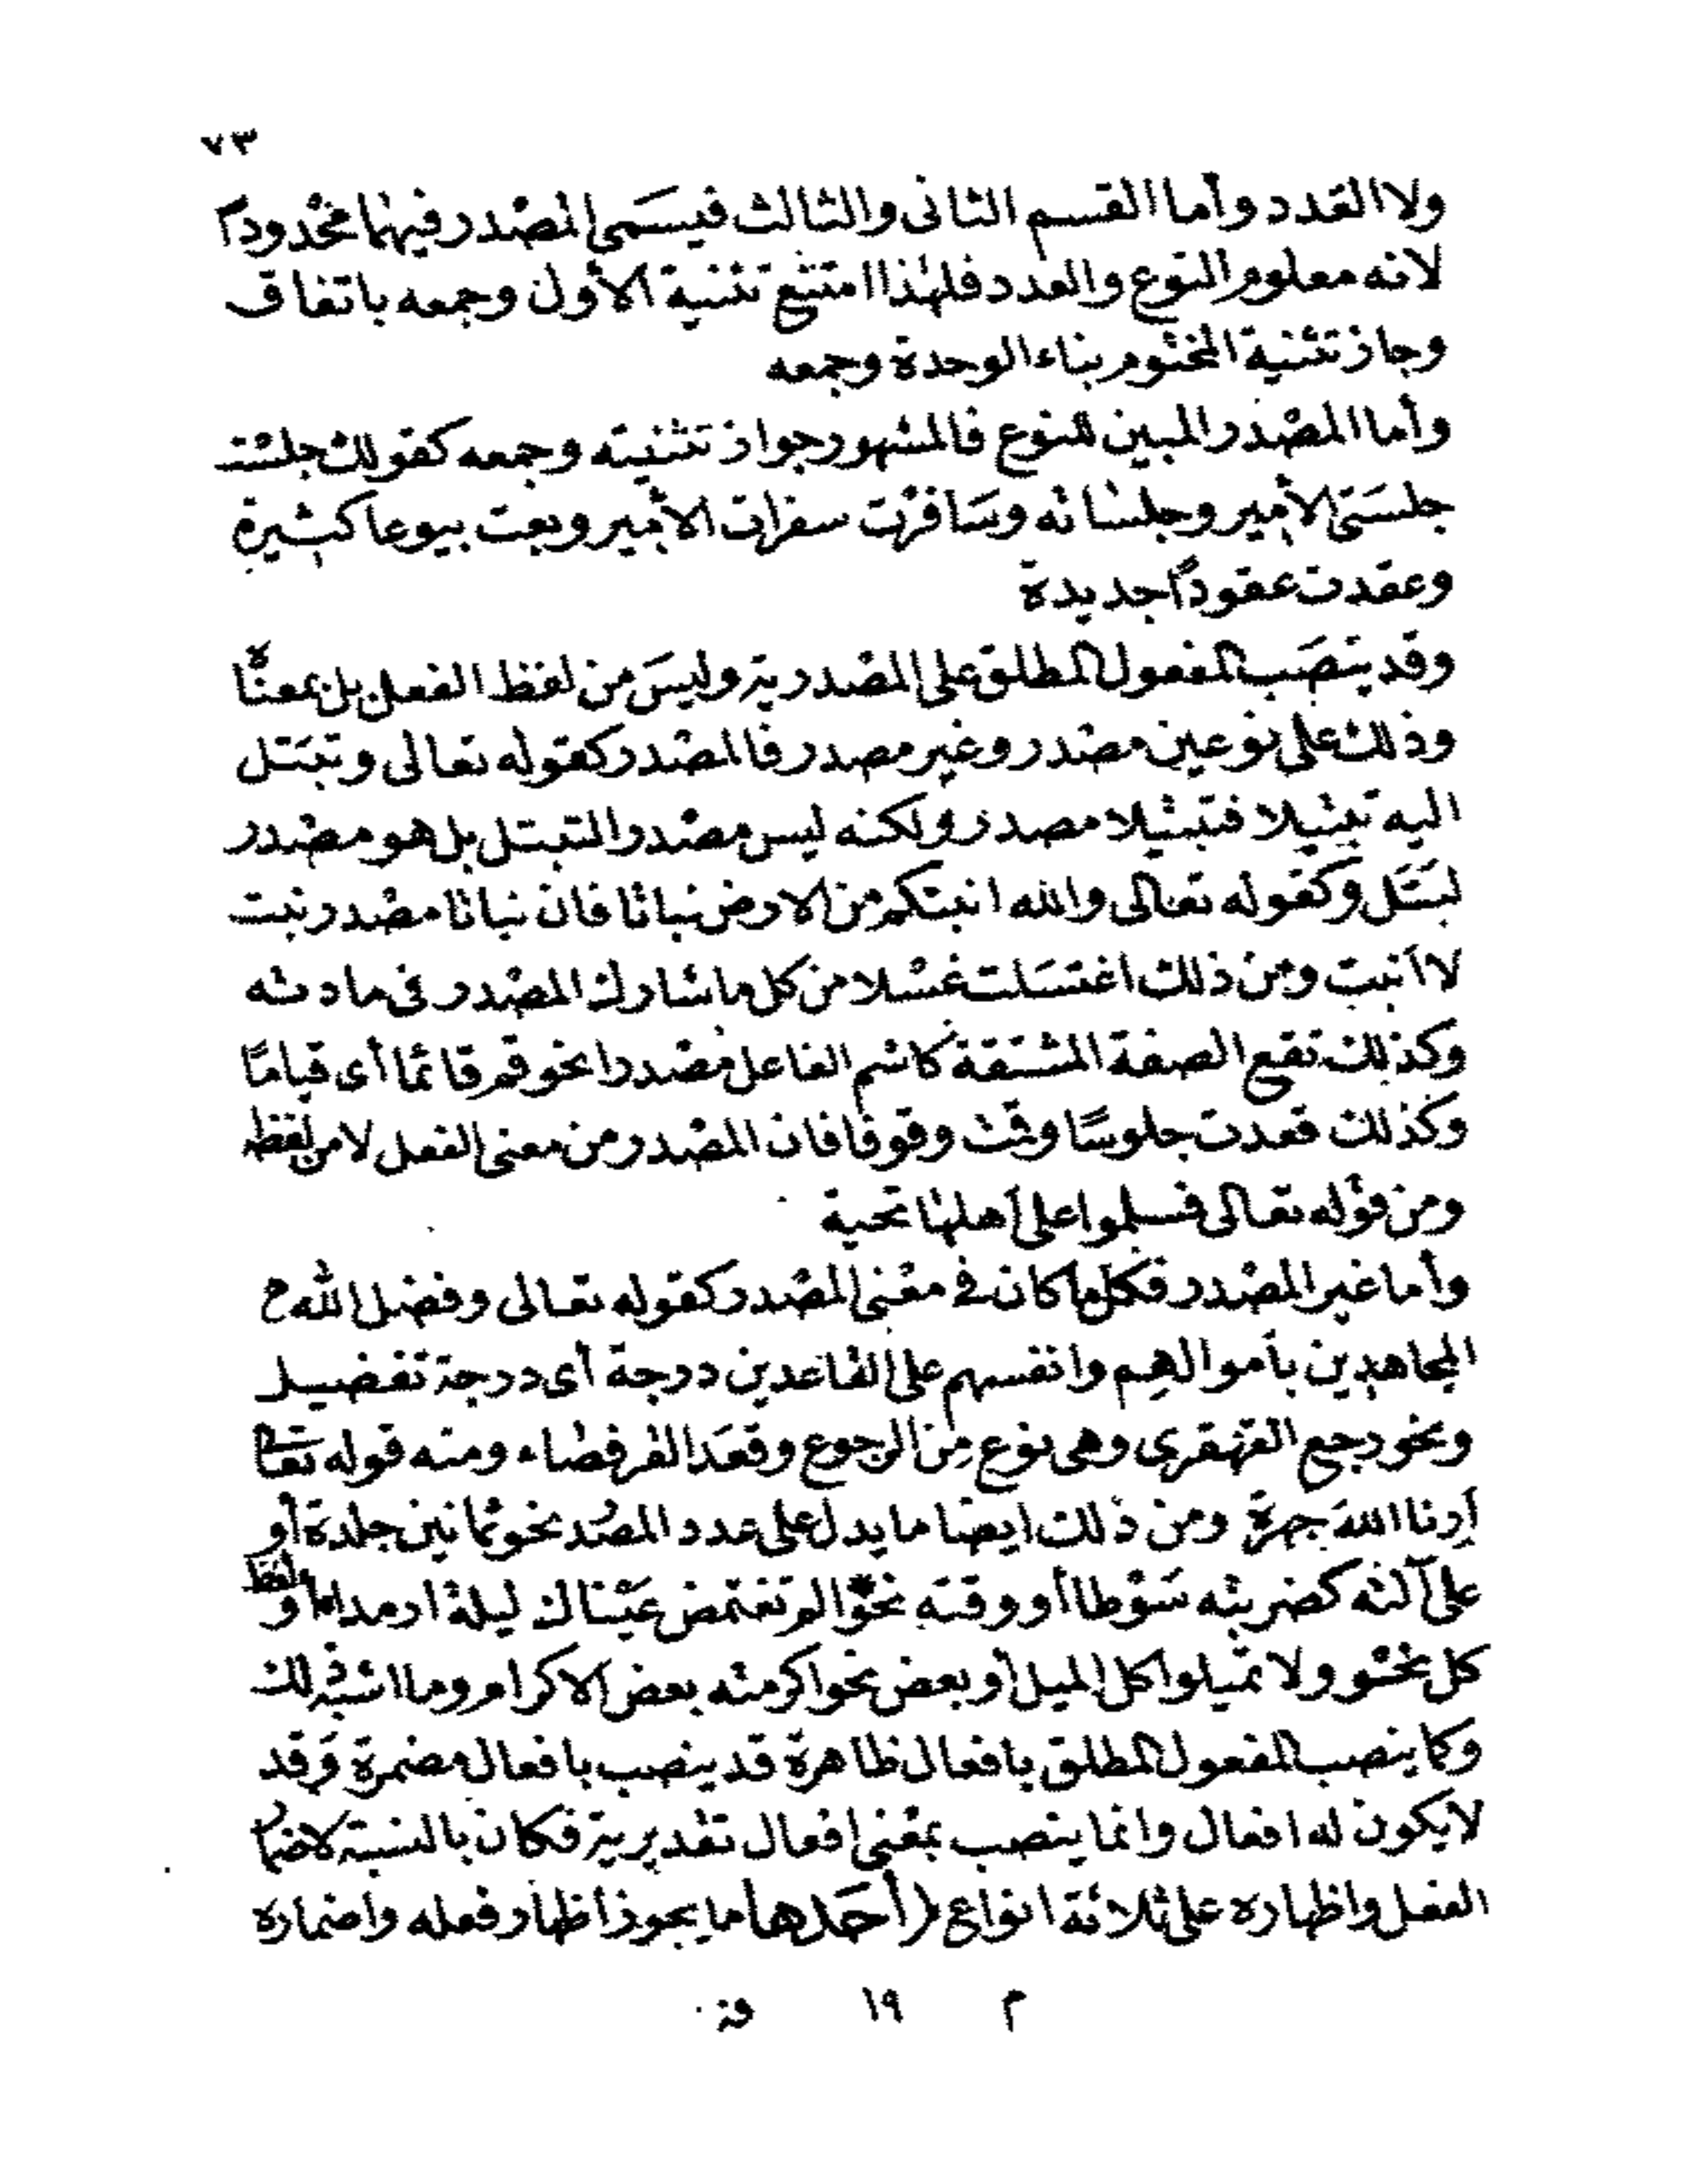 ٧٣
ولا العدد وأما القسم الثانى والثالث فيسَمى المصْدر فيهما محْدودًا
لانه معلوم النوع والعدد فلهذا امتنع تثنية الأول وجمعه باتفاق
وجاز تثنية المختوم بتاء الوحدة وجمعه
وأما المصْدر المبين للنوع فالمشهور جواز تثنيته وجمعه كقولك جلسْت
جلسَتى الأمير وجلساته وسَافرت سفرات الأمير وبعت بيوعا كثيرة
وعقدت عقودًا جديدة
وقد ينصَب المفعول المطلق على المصْدرية وليسَ من لفظ الفعل بل بمعناه
وذلك على نوعين مصْدر وغير مصدر فالمصْدر كقوله تعالى وتبتل
اليه تبتيلا فتبتيلا مصدر ولكنه ليس مصْدر التبتل بل هو مصْدر
لبتَّل وكقوله تعالى والله انبتكم من الارض نباتا فان نباتا مصْدر نبت
لا أنبت ومن ذلك اغتسَلت غسْلا من كل ما شارك المصْدر فى مادته
وكذلك تقع الصفة المشتقة كاسْم الفاعل مصْدرا نحو قم قائما أى قيامًا
وكذلك قعدت جلوسًا وقمت وقوفا فان المصْدر من معنى الفعل لا من لفظه
ومن قوله تعالى فسلموا على أهلها تحية
وأما غير المصْدر فكل ما كان فى معْنى المصْدر كقوله تعالى وفضل الله
المجاهدين بأموالهِم وانفسهم على القاعدين درجة أى درجة تفضيل
ونحو رجع القهقرى وهى نوع مِن الرجوع وقعَد القرفصاء ومنه قوله تعالى
أرنا اللهَ جهرةً ومن ذلك ايضا ما يدل على عدد المصْدر نحو ثمانين جلدة أو
على آلته كضربته سَوْطا أو وقته نحو الم تغتمض عيْناك ليلة ارمدا أو لفظ
كل نحو ولا تميلوا كل الميل أو بعض نحو اكرمته بعض الاكرام وما اشبه ذلك
وكما ينصب المفعول المطلق بافعال ظاهرة قد ينصب بافعال مضمرة وَقد
لا يكون له افعال وانما ينصب بمعْنى افعال تقديرية فكان بالنسبة لاضمار
الفعل واظهاره على ثلاثة انواع (أحَدها) ما يجوز أظهار فعله واضماره
م ١٩ فنـ